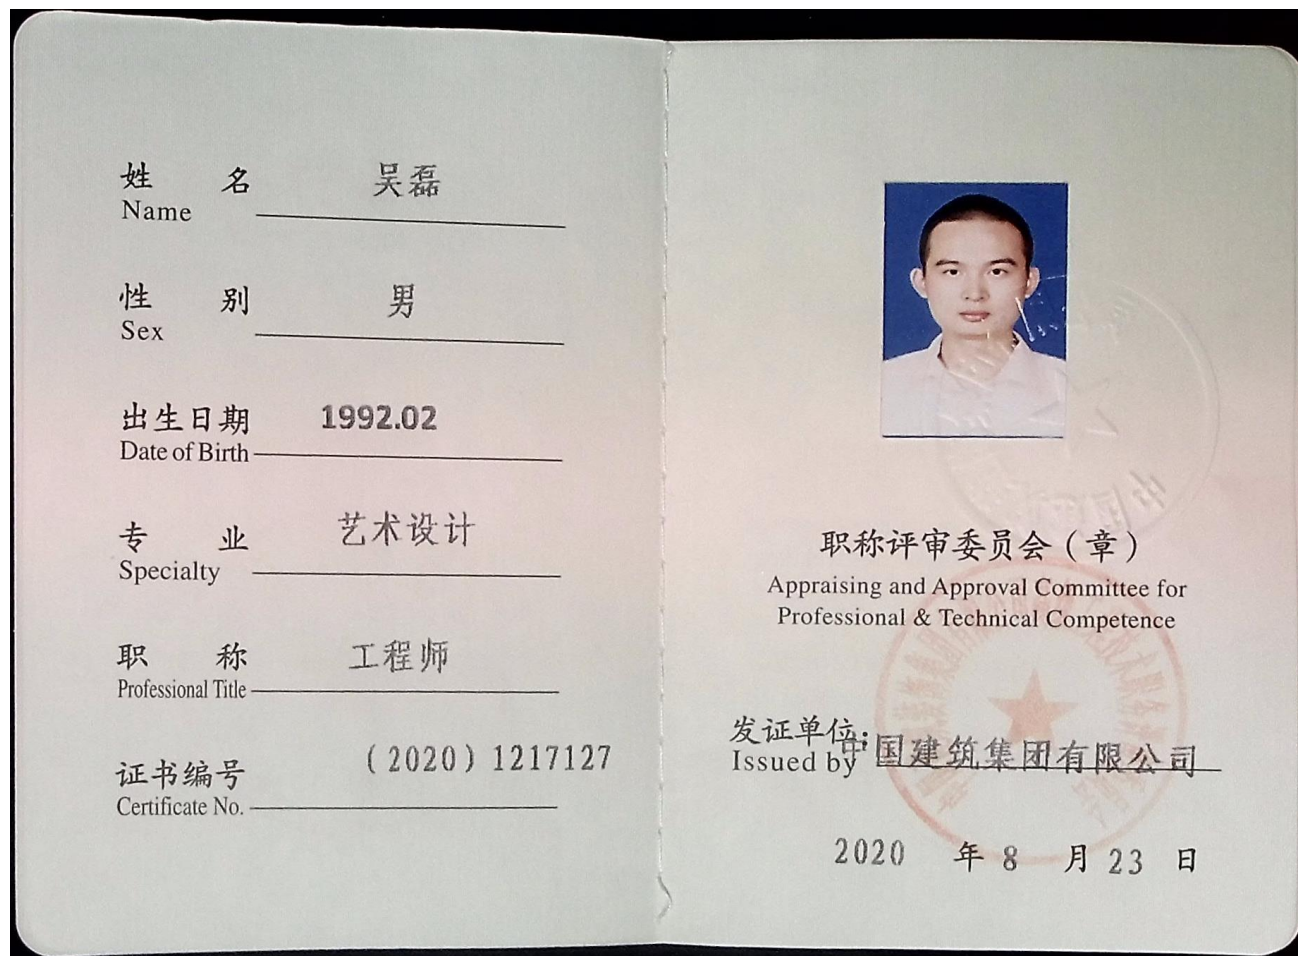 姓名 吴磊
Name
性别 男
Sex
出生日期 1992.02
Date of Birth
专业 艺术设计
Specialty
职称 工程师
Professional Title
证书编号 (2020) 1217127
Certificate No.
职称评审委员会（章）
Appraising and Approval Committee for
Professional & Technical Competence
发证单位: 中国建筑集团有限公司
Issued by
2020 年 8 月 23 日